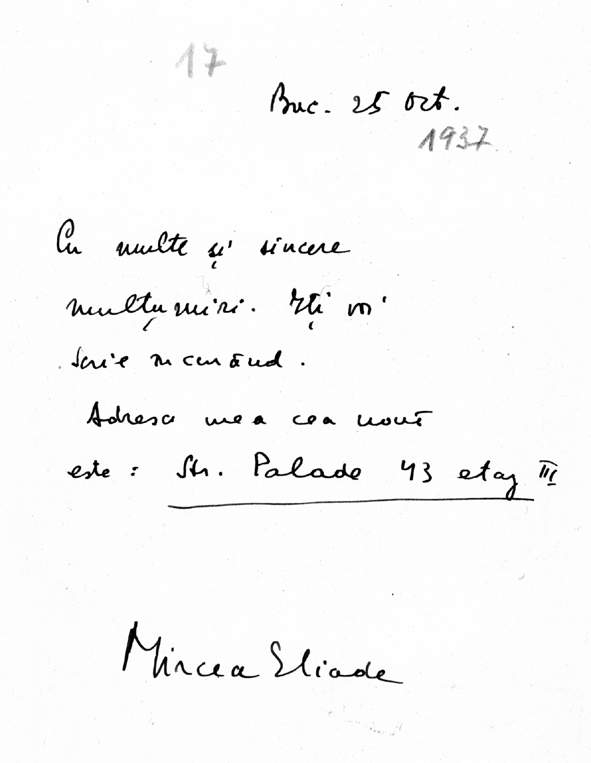 17
Buc. 25 Oct.
1937
Cu multe și sincere
mulțumiri. Îți voi
scrie în curând.
Adresa mea cea nouă
este : Str. Palade 43 etaj III
Mircea Eliade